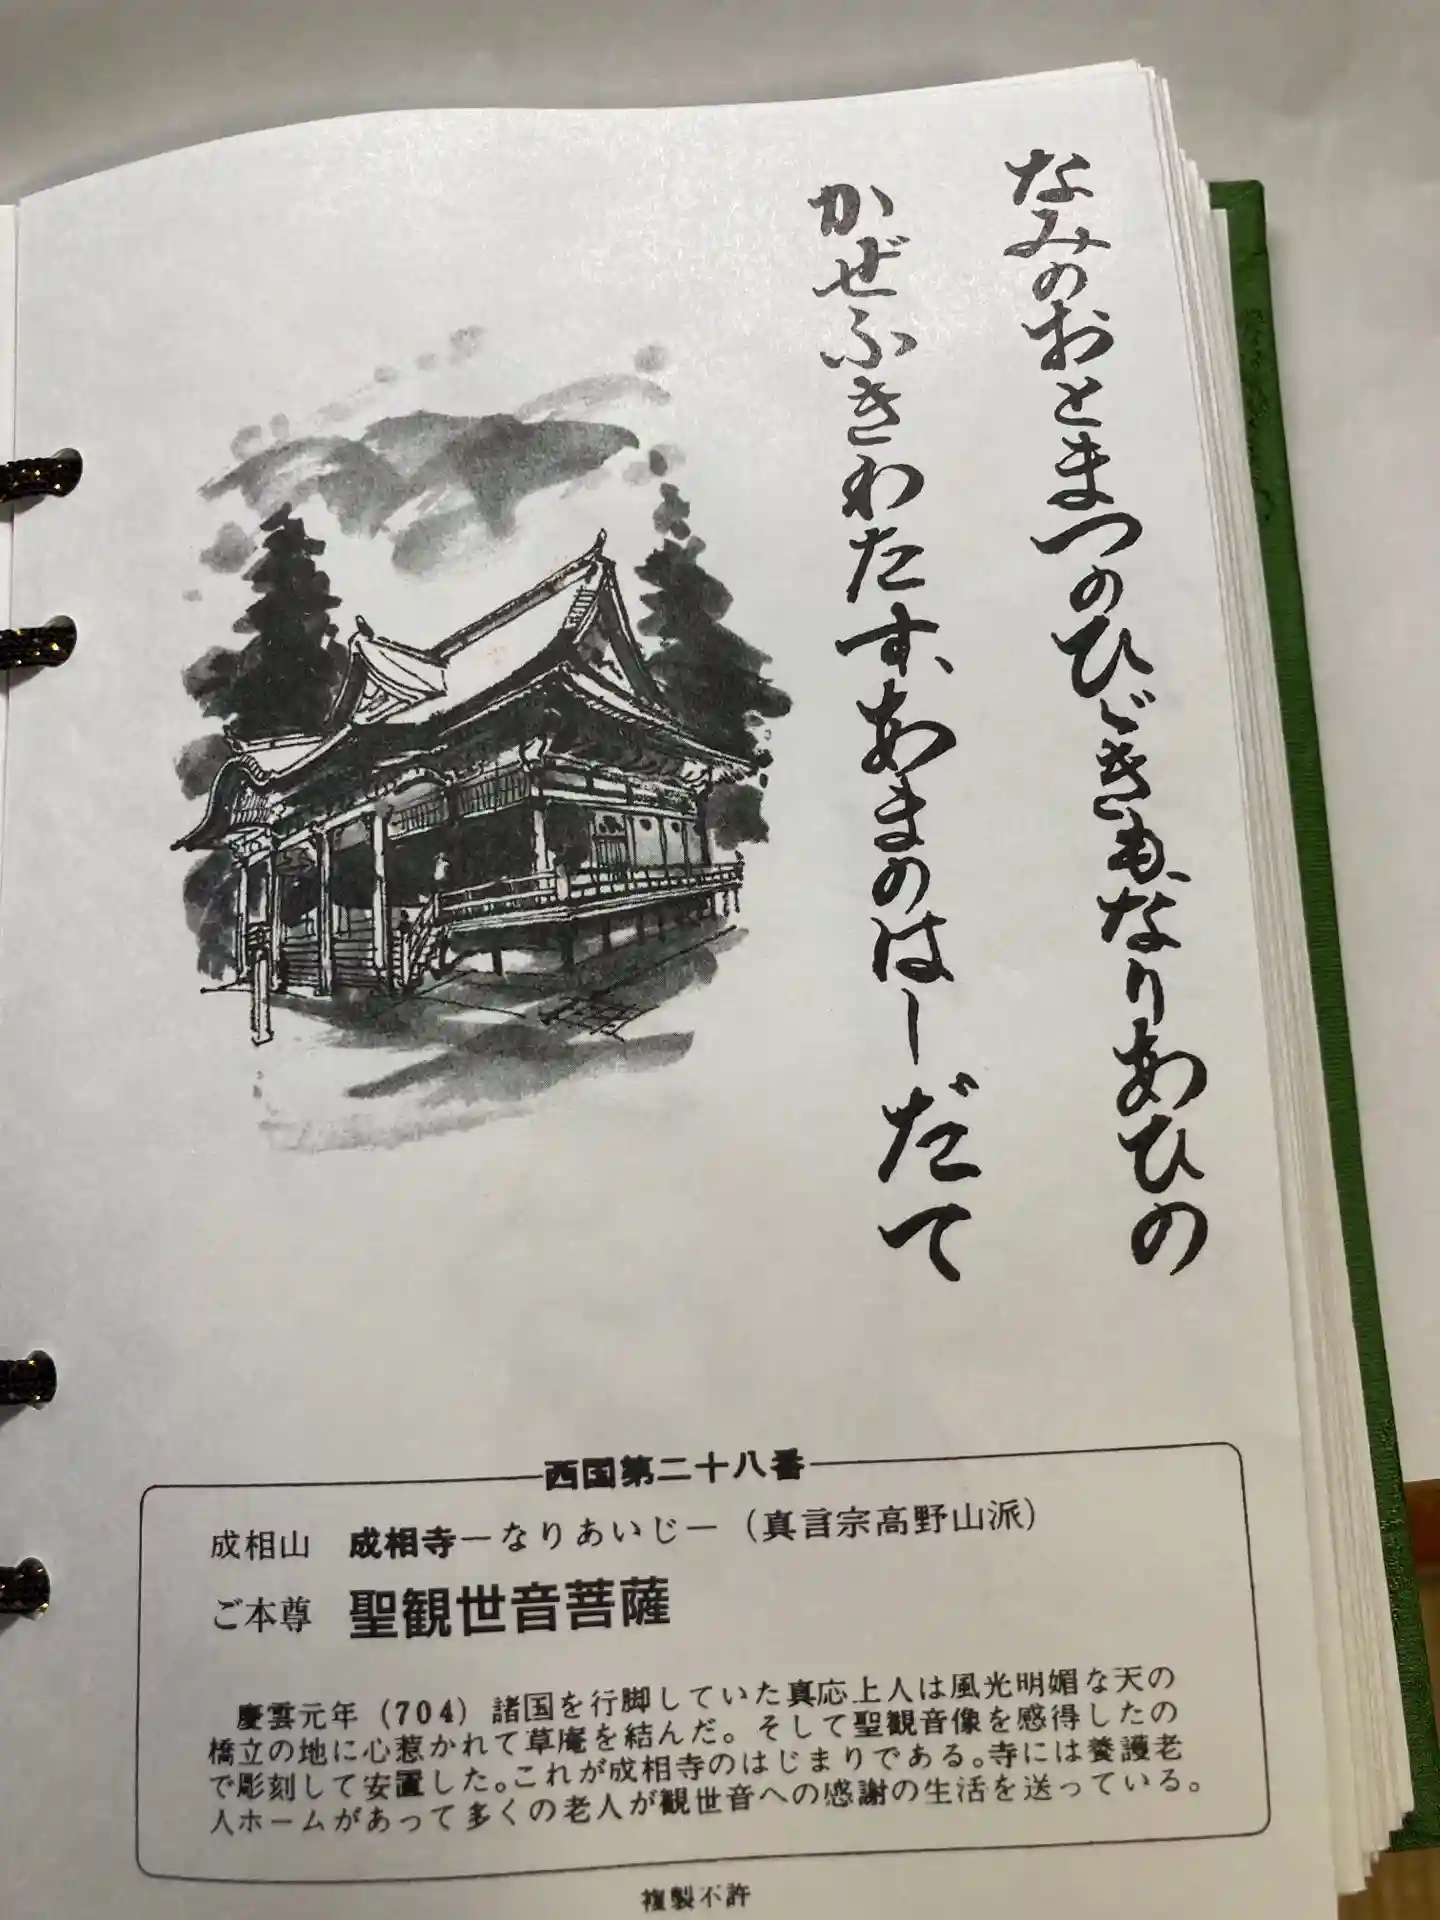 なみのおとまつのひゞきも、なりあひの
かぜふきわたす、あまのはしだて
西国第二十八番
成相山 成相寺―なりあいじ―（真言宗高野山派）
ご本尊 聖観世音菩薩
慶雲元年（704）諸国を行脚していた真応上人は風光明媚な天の
橋立の地に心惹かれて草庵を結んだ。そして聖観音像を感得したの
で彫刻して安置した。これが成相寺のはじまりである。寺には養護老
人ホームがあって多くの老人が観世音への感謝の生活を送っている。
複製不許